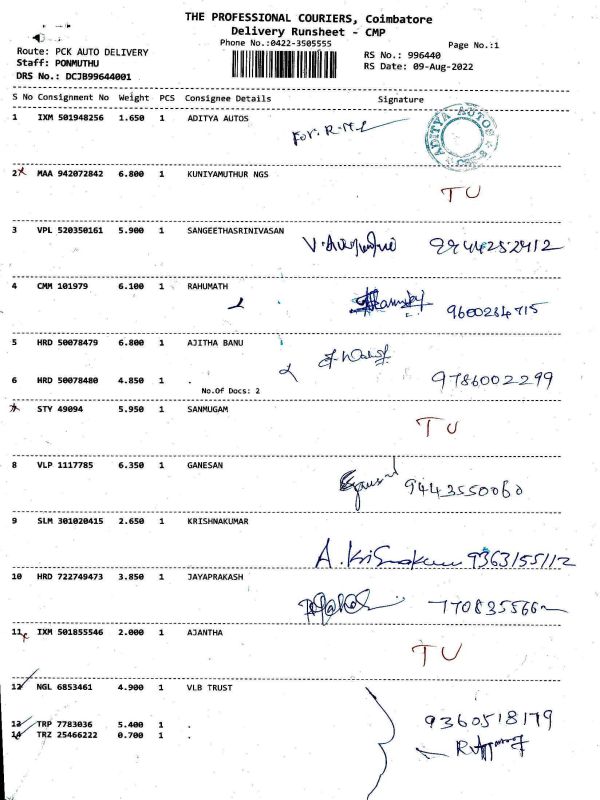 THE PROFESSIONAL COURIERS, Coimbatore
Delivery Runsheet - CMP
Phone No.:0422-3505555
Page No.:1
Route: PCK AUTO DELIVERY
Staff: PONMUTHU
DRS No.: DCJB99644001
RS No.: 996440
RS Date: 09-Aug-2022
S No Consignment No Weight PCS Consignee Details Signature
1 IXM 501948256 1.650 1 ADITYA AUTOS
For: R-M-L
ADITYA AUTOS
2 MAA 942072842 6.800 1 KUNIYAMUTHUR NGS
TU
3 VPL 520350161 5.900 1 SANGEETHASRINIVASAN
9944252412
4 CMM 101979 6.100 1 RAHUMATH
9600264715
5 HRD 50078479 6.800 1 AJITHA BANU
6 HRD 50078480 4.850 1 .
9786002299
No.Of Docs: 2
STY 49094 5.950 1 SANMUGAM
TU
8 VLP 1117785 6.350 1 GANESAN
9443550060
9 SLM 301020415 2.650 1 KRISHNAKUMAR
9363155112
10 HRD 722749473 3.850 1 JAYAPRAKASH
11 IXM 501855546 2.000 1 AJANTHA
TU
12 NGL 6853461 4.900 1 VLB TRUST
13 TRP 7783036 5.400 1 .
9360518179
14 TRZ 25466222 0.700 1 .